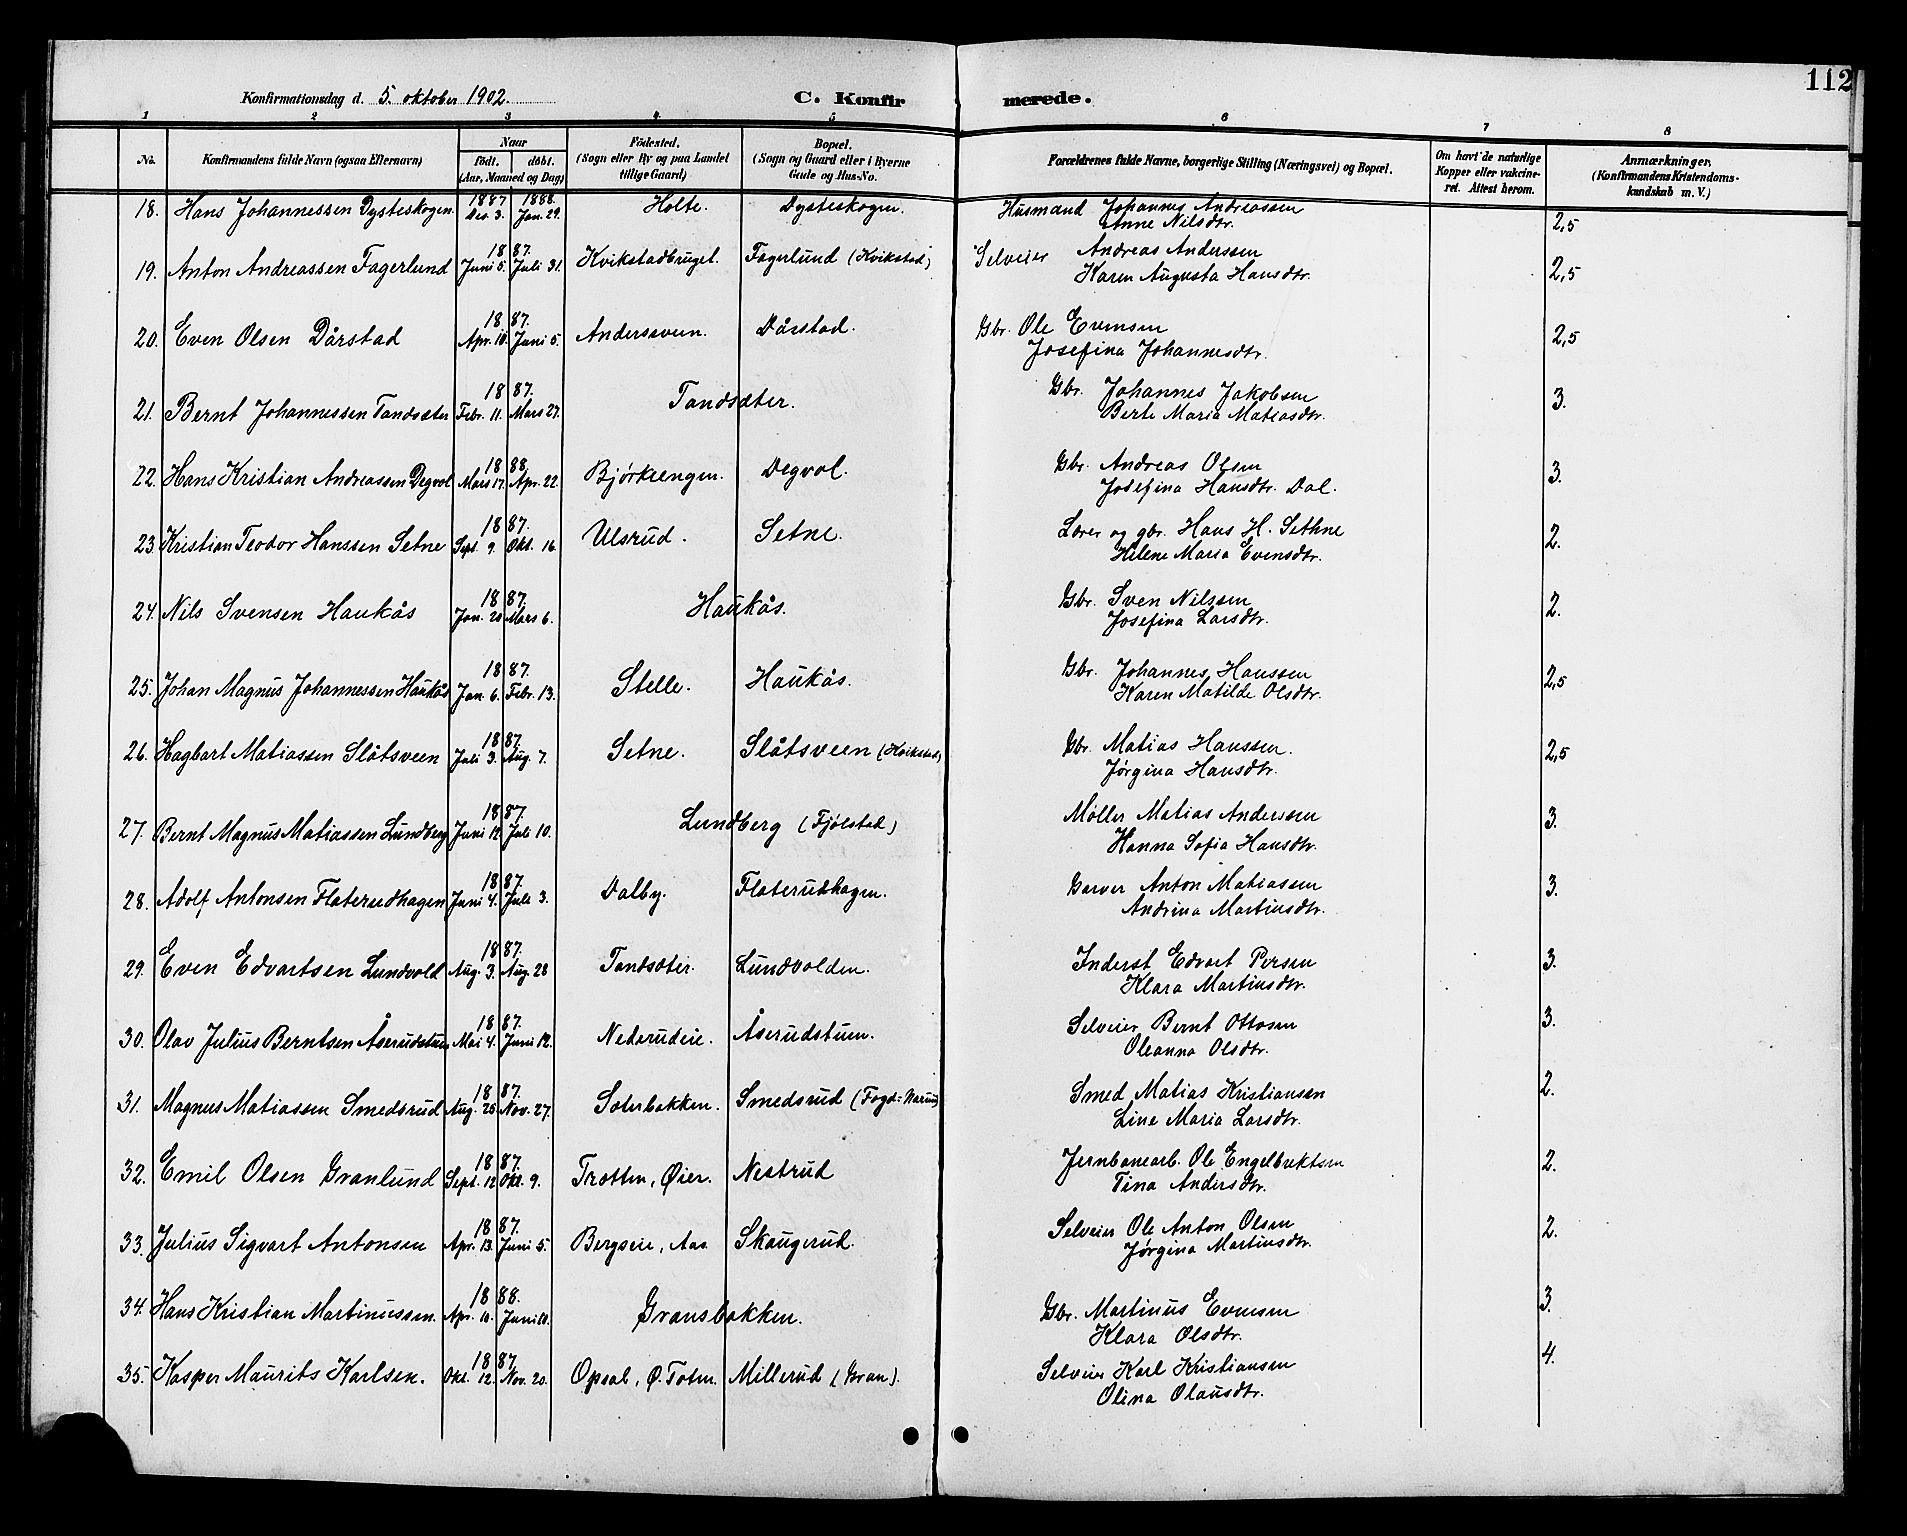 112
Konfirmationsdag d. 5. oktober 1902. C. Konfirmerede.
1 2 3 4 5 6 7 8
No. Konfirmandens fulde Navn (ogsaa Efternavn) Naar födt. döbt. (Aar, Maaned og Dag) Födested. (Sogn eller By og paa Landet tillige Gaard) Bopæl. (Sogn og Gaard eller i Byerne Gade og Hus-No. Forældrenes fulde Navne, borgerlige Stilling (Næringsvei) og Bopæl. Om havt de naturlige Kopper eller vakcineret. Attest herom. Anmærkninger. (Konfirmandens Kristendomskundskab m. V.)
18. Hans Johannessen Dysteskogen. 1887 Des. 3. 1888. Jan. 29. Holte. Dysteskogen. Husmand Johannes Andreassen
Anne Nilsdtr. 2,5
19. Anton Andreassen Fagerlund 1887. Juni 5. Juli 31. Kvikstadbruget. Fagerlund (Kvikstad) Selveier Andreas Anderssen
Karen Augusta Hansdtr. 2,5
20. Even Olsen Dårstad 1887. Apr. 10. Juni 5. Andersveen. Dårstad. Gbr. Ole Evensen
Josefina Johannesdtr. 2,5
21. Bernt Johannessen Tandsæter 1887. Febr. 11. Mars 27. Tandsæter. Gbr. Johannes Jakobsen
Berte Maria Matiasdtr. 3.
22. Hans Kristian Andreassen Degvol 1888. Mars 17. Apr. 22. Bjørkeengen. Degvol. Gbr. Andreas Olsen
Josefina Hansdtr. Dal. 3.
23. Kristian Teodor Hanssen Setne 1887. Sept. 9. Okt. 16. Ulsrud. Setne. Lærer og gbr. Hans H. Sethne
Helene Maria Evensdtr. 2.
24. Nils Svensen Haukås 1887. Jan. 20 Mars 6. Haukås. Gbr. Sven Nilssen
Josefina Larsdtr. 2.
25. Johan Magnus Johannessen Haukås 1887. Jan. 6. Febr. 13. Stelle. Haukås. Gbr. Johannes Hanssen
Karen Matilde Olsdtr. 2,5
26. Hagbart Matiassen Slåtsveen 1887. Juli 3. Aug. 7. Setne. Slåtsveen (Kvikstad) Gbr. Matias Hanssen.
Jørgina Hansdtr. 2,5
27. Bernt Magnus Matiassen Lundberg 1887. Juni 12. Juli 10. Lundberg (Fjølstad) Møller Matias Anderssen
Hanna Sofia Hansdtr. 3.
28. Adolf Antonsen Flaterudhagen 1887. Juni 4. Juli 3. Dalby. Flaterudhagen. Garver Anton Matiassen
Andrina Martinsdtr. 3.
29. Even Edvartsen Lundvold 1887. Aug. 3. Aug. 28 Tandsæter. Lundvolden. Inderst Edvart Persen
Klara Martinsdtr. 3.
30. Olav Julius Berntsen Åserudstuen 1887. Mai 4. Juni 12. Nederudeie. Åserudstuen. Selveier Bernt Ottosen
Oleanna Olsdtr. 3.
31. Magnus Matiassen Smedsrud 1887. Aug. 25 Nov. 27. Soterbakken. Smedsrud (Fogd-Narum) Smed Matias Kristiansen
Line Maria Larsdtr. 2.
32. Emil Olsen Granlund 1887. Sept. 12 Okt. 9. Trætten, Øier. Nestrud Jernbanearb. Ole Engelbrektsen
Tina Andersdtr. 2.
33. Julius Sigvart Antonsen 1887. Apr. 13. Juni 5. Bergseie, Aas. Skaugerud. Selveier Ole Anton Olsen
Jørgina Martinsdtr. 2.
34. Hans Kristian Martinussen. 1888. Apr. 10. Juni 10. Gransbakken. Gbr. Martinus Evensen
Klara Olsdtr. 3.
35. Kasper Maurits Karlsen. 1887. Okt. 12. Nov. 20. Opsal, Ø. Toten. Millerud (Gran). Selveier Karl Kristiansen
Olina Olausdtr. 4.